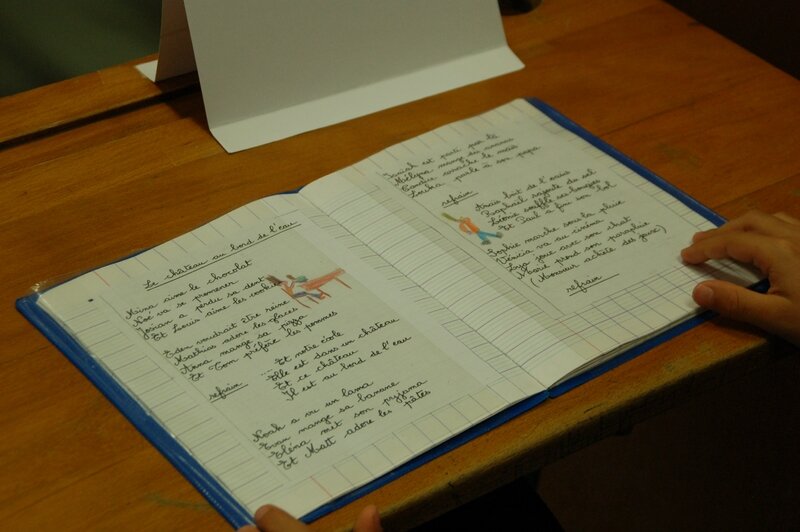 Le château au bord de l'eau
Maya aime le chocolat
Noé va se promener
a perdu sa dent
Et Louis aime les cookies
Eden voudrait être reine
Mathias adore les glaces
Anna mange sa pizza
Et Tom préfère les pommes
refrain
... Et notre école
Elle est dans un château
Et ce château
Il est au bord de l'eau
Noah a vu un lama
Evan mange sa banane
Eléna met son pyjama
Et Matt adore les pâtes
est parti par là
mange des
Candice arrache le maïs
Louka parle à son papa
refrain
Anaïs boit de l'eau
Raphaël rajoute du sel
Léonie souffle ses bougies
Et Paul a fini son bol
Sophie marche sous la pluie
va au cinéma
joue avec son chat
prend son parapluie
(Monsieur achète des jeux)
refrain